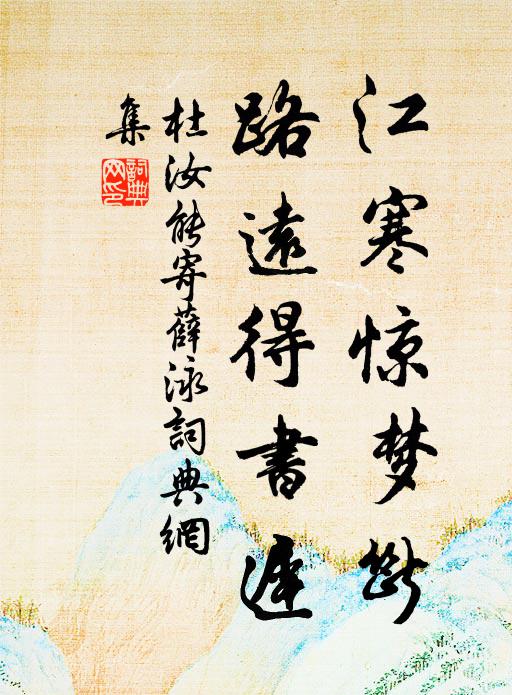 江寒惊梦断
路遠得書遲
杜汝能寄薛泳詞典網
集
詞典网印